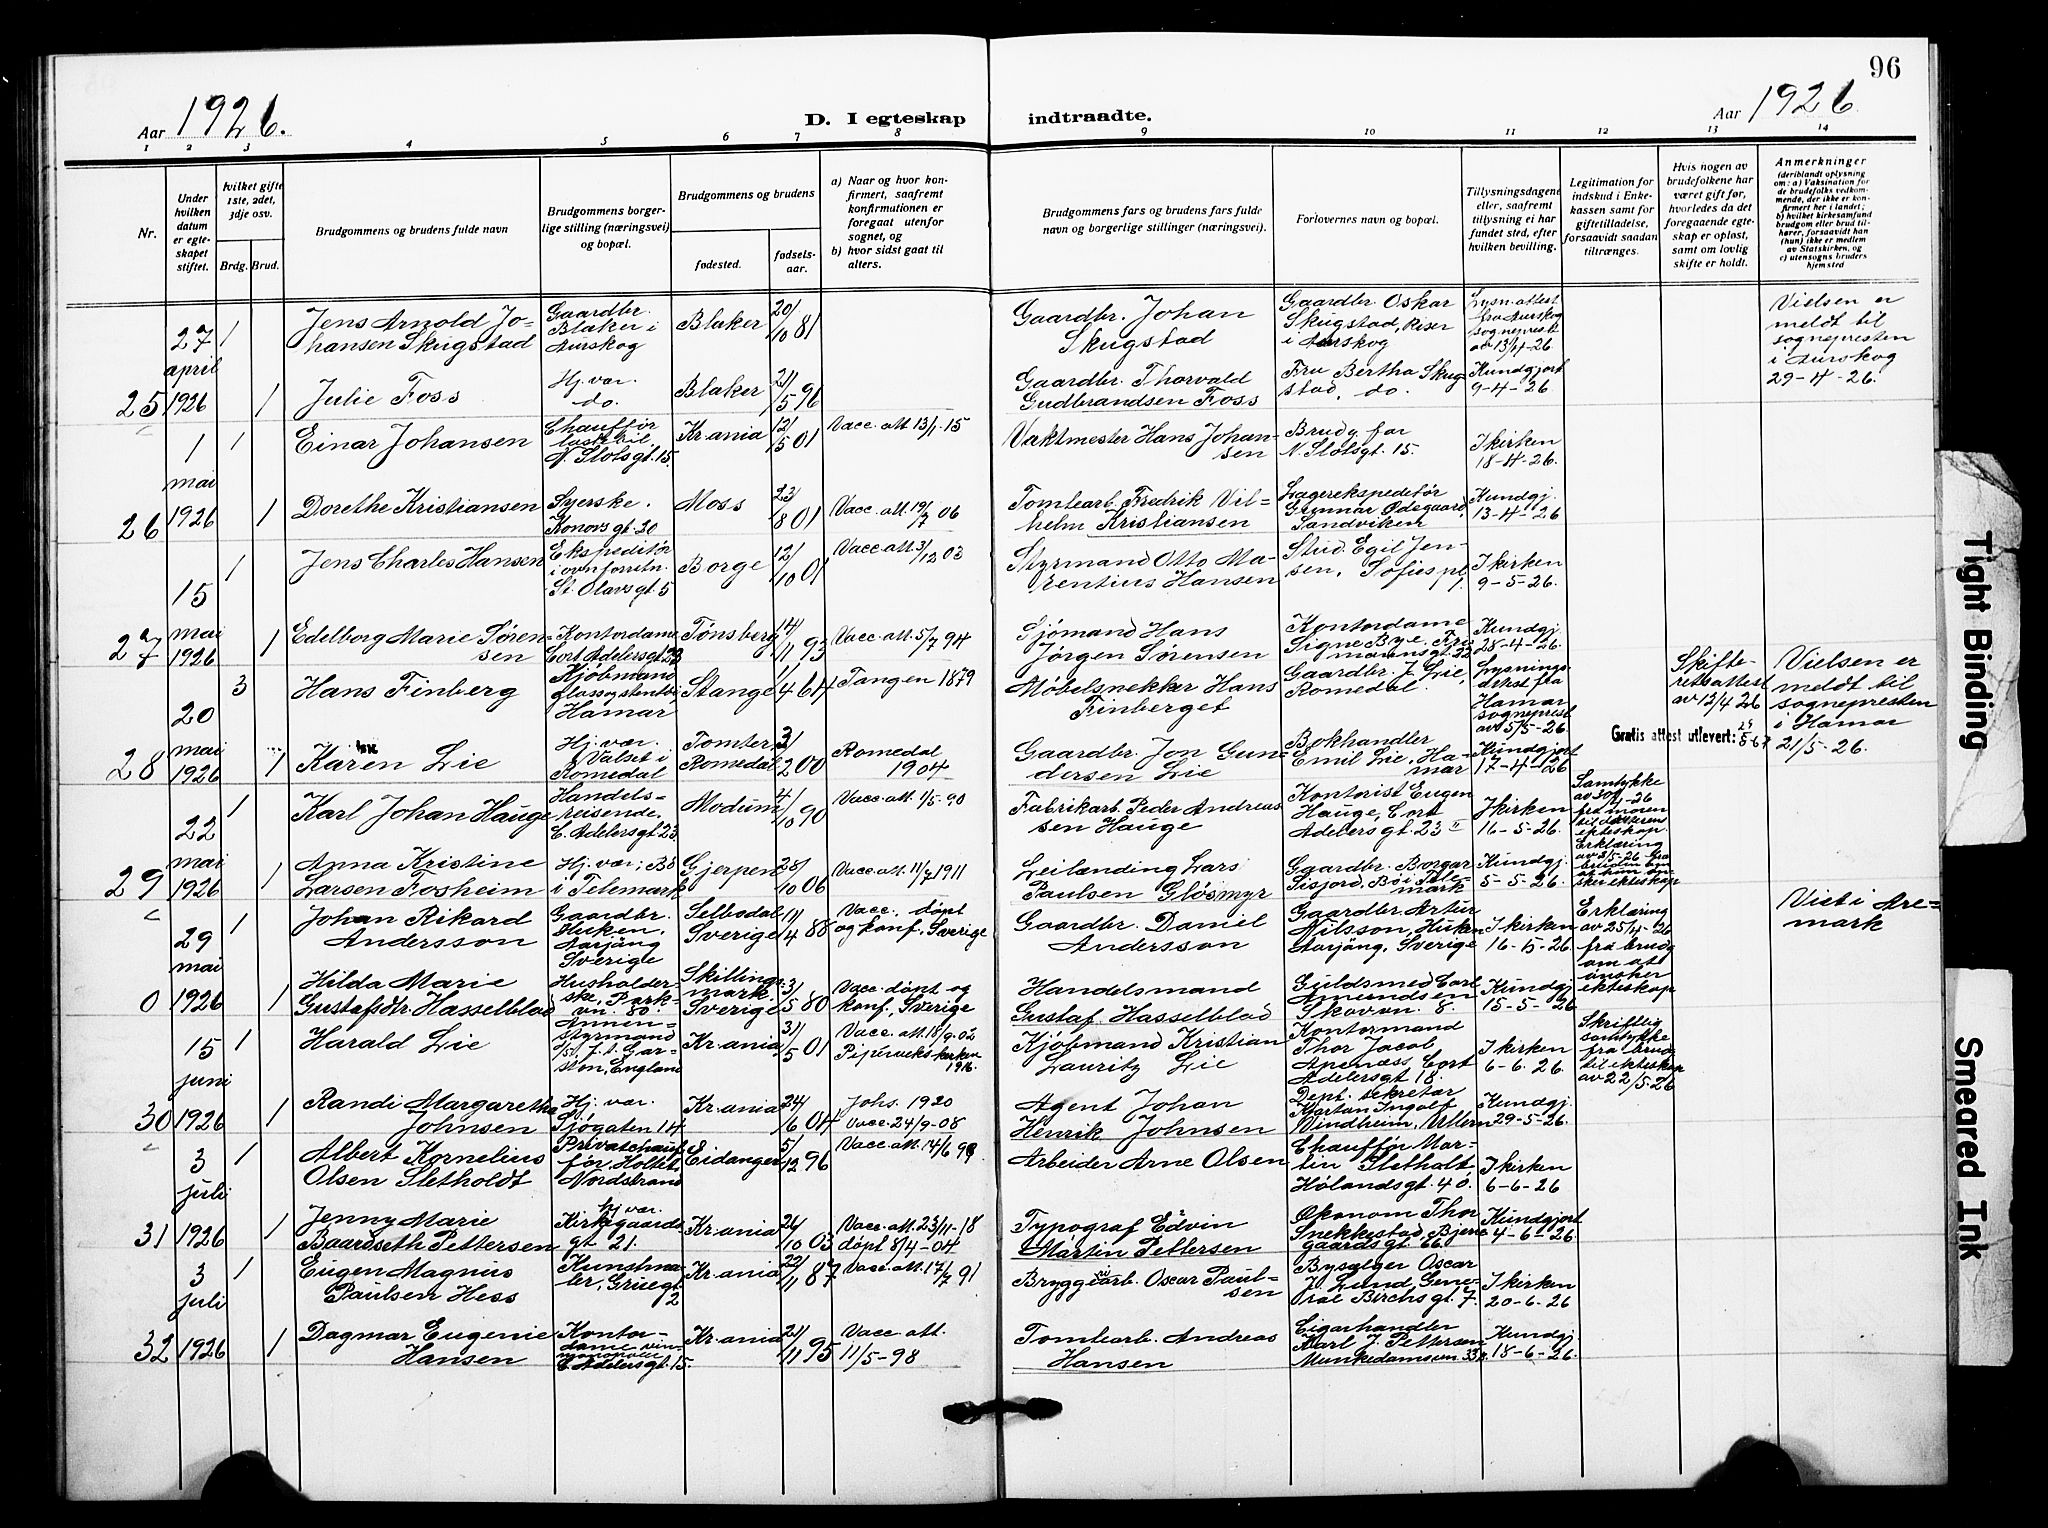 96
Aar 1926.
D. I egteskap
indtraadte.
Aar 1926
1 2 3 4 5 6 7 8 9 10 11 12 13 14
Nr.
Under hvilken datum er egteskapet stiftet.
hvilket gifte 1ste, 2det, 3dje osv.
Brdg. Brud.
Brudgommens og brudens fulde navn
Brudgommens borgerlige stilling (næringsvei) og bopæl.
Brudgommens og brudens
fødested.
fødselsaar.
a) Naar og hvor konfirmert, saafremt konfirmationen er foregaat utenfor sognet, og
b) hvor sidst gaat til alters.
Brudgommens fars og brudens fars fulde navn og borgerlige stillinger (næringsvei).
Forlovernes navn og bopæl.
Tillysningsdagene eller, saafremt tillysning ei har fundet sted, efter hvilken bevilling.
Legitimation for indskud i Enkekassen samt for giftetilladelse, forsaavidt saadan tiltrænges.
Hvis nogen av brudefolkene har været gift før, hvorledes da det foregaaende egteskap er opløst, samt om lovlig skifte er holdt.
Anmerkninger (deriblandt oplysning om: a) Vaksination for de brudefolks vedkommende, der ikke er konfirmert her i landet; b) hvilket kirkesamfund brudgom eller brud tilhører, forsaavidt han (hun) ikke er medlem av Statskirken, og c) utensogns bruders hjemsted
25
27 april 1926
1
Jens Arnold Johansen Skugstad
Gaardbr. Blaker i Aurskog
Blaker
20/10 81
Gaardbr. Johan Skugstad
Gaardbr. Oskar Skugstad, Riser i Aurskog
Lysn. attest fra Aurskog sogneprest av 13/4-26
Vielsen er meldt til sognepresten i Aurskog 29-4-26.
1
Julie Foss
Hj. vær. do.
Blaker
21/5 96
Gaardbr. Thorvald Gudbrandsen Foss
Fru Bertha Skugstad, do.
Kundgjort 9-4-26
26
1 mai 1926
1
Einar Johansen
Chauffør lastebil, N. Slotsgt. 15.
Kr.ania
12/5 01
Vacc. att. 13/1-15
Vaktmester Hans Johansen
Brudg. far N. Slotsgt. 15.
I kirken 18-4-26.
1
Dorethe Kristiansen
Syerske. Konowsgt. 20
Moss
23/8 01
Vacc. att. 19/7 06
Tomtearb. Fredrik Vilhelm Kristiansen
Lagerekspeditør Gunnar Ødegaard, Sandviken
Kundgj. 13-4-26
27
15 mai 1926
1
Jens Charles Hansen
Ekspeditør i ovnforretn. St. Olavsgt. 5
Borge
12/10 01
Vacc. att. 3/12 03
Styrmand Otto Marentius Hansen
Stud. Egil Jensen, Sofies pl. 1.
I kirken 9-5-26.
1
Edelborg Marie Sørensen
Kontordame Cort Adelersgt. 23
Tønsberg
14/11 93
Vacc. att. 5/7 94
Sjømand Hans Jørgen Sørensen
Kontordame Signe Bye,
Kundgj. 28-4-26.
28
20 mai 1926
3
Hans Finberg
Kjøbmand, Hamar
Stange
1/4 64
Tangen 1879
Møbelsnekker Hans Finberget
Gaardbr. J. Lie, Romedal.
Lysningsattest fra Hamar sogneprest av 5/5-26.
Skifteretsattest av 13/4 26
Vielsen er meldt til sognepresten i Hamar 21/5-26.
Gratis attest utlevert:
1
Karen Lie
Hj. vær. Valset i Romedal
Tomter, Romedal
3/2 00
Romedal 1904
Gaardbr. Jon Gundersen Lie
Bokhandler Emil Lie, Hamar
Kundgjort 17-4-26
29
22 mai 1926
1
Karl Johan Hauge
Handelsreisende, C. Adelersgt. 23.
Modum
4/10 90
Vacc. att. 1/5-90
Fabrikarb. Peder Andreassen Hauge
Kontorist Eugen Hauge, Cort Adelersgt. 23 II
I kirken 16-5-26.
Samtykke av 30/4-26 fra moren til datterens ekteskap. Erklæring av
1
Anna Kristine Larsen Fosheim
Hj. vær; Bø i Telemark
Gjerpen
28/10 06
Vacc. att. 11/7 1911
Leilending Lars Paulsen Gløsmyr
Gaardbr. Borgar Sisjord, Bø i Telemark
Kundgj. 5-5-26.
0
29 mai 1926
1
Johan Rikard Andersson
Gaardbr. Huken, Aarjäng Sverige
Selbodal Sverige
11/4 88
Vacc., døpt og konf. Sverige
Gaardbr. Daniel Andersson
Gaardbr. Artur Nilsson, Huken Aarjäng, Sverige
I kirken 16-5-26
Erklæring av 25/4-26 fra brudg om at ønsker ekteskap
Viet i Aremark
1
Hilda Marie Gustafsdtr. Hasselblad
Husholderske, Parkvn. 80.
Skillingsmark. Sverige
3/5 80
Vacc. døpt og konf., Sverige
Handelsmand Gustaf Hasselblad
Guldsmed Carl Amundsen Skovvn. 8.
Kundgj. 15-5-26
30
15 juni 1926
1
Harald Lie
Annenstyrmand Garston, England
Kr.ania
31/5 01
Vacc. att. 18/9-02 Piperviks kirken 1916.
Kjøbmand Kristian Lauritz Lie
Kontormand Thor Jacob Apenæss Cort Adelersgt 18.
I kirken 6-6-26
Skriftlig samtykke fra brudg til ekteskap av 22/5-26
1
Randi Margarethe Johnsen
Hj. vær. Sjøgaten 14
Kr.ania
24/6 04
Johs. 1920 Vacc. 24/9-08
Agent Johan Henrik Johnsen
Dept. sekretær Kartan Ingolf Windheim, Ullern
Kundgj. 29-5-26.
31
3 juli 1926
1
Albert Kornelius Olsen Sletholdt
Privatchauffør, Holtet Nordstrand
Eidanger
5/12 96
Vacc. att. 14/6 99
Arbeider Arne Olsen
Chauffør Martin Sletholt, Hølandsgt. 40.
I kirken 6-6-26
1
Jenny Marie Baardseth Pettersen
hj. vær. Kirkegaardsgt 21.
Kr.ania
26/10 03
Vacc. att. 23/11-18 døpt 8/4-04
Typograf Edvin Martin Pettersen
Økonom Thor Snekkestad, Bjerregaardsgt 66.
Kundgjort 4-6-26
32
3 juli 1926
1
Eugen Magnus Paulsen Hess
Kunstmaler, Gruegt 2
Kr.ania
22/11 87
Vacc. att. 17/7 91
Bryggeriarb. Oscar Paulsen
Bysælger Oscar J. Lund, General Birchsgt. 7.
I kirken 20-6-26
1
Dagmar Eugenie Hansen
Kontordame vinmonopolet C. Adelersgt. 15.
Kr.ania
21/11 95
Vacc. att. 11/5-98
Tomtearb. Andreas Hansen
Cigarhandler Karl J. Pettersen Munkedamsvn 33
Kundgj. 18-6-26.
Tight Binding
Smeared Ink